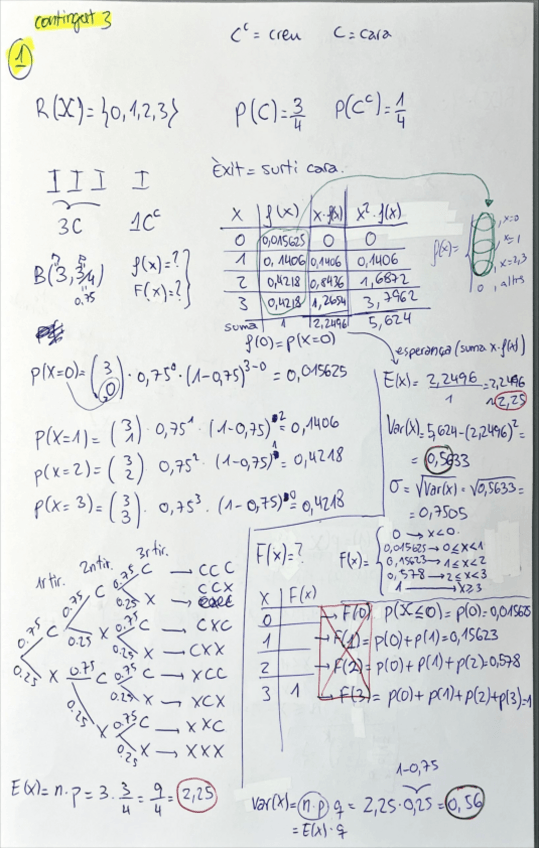 contingut 3
Cᶜ = creu C = cara
1
R(X) = {0,1,2,3}
P(C) = 3/4 P(Cᶜ) = 1/4
I I I I
3C 1Cᶜ
Èxit = surti cara.
B(3, 3/4)
n p
0,75
f(x) = ?
F(x) = ?
x f(x) x·f(x) x²·f(x)
0 0,015625 0 0
1 0,1406 0,1406 0,1406
2 0,4218 0,8436 1,6872
3 0,4218 1,2654 3,7962
suma 1 2,2496 5,624
f(x) =
, x=0
, x=1
, x=2,3
0 , altres
f(0) = P(X=0)
esperança (suma x·f(x))
P(X=0) = (3 0) · 0,75⁰ · (1-0,75)³⁻⁰ = 0,015625
P(X=1) = (3 1) · 0,75¹ · (1-0,75)² = 0,1406
P(X=2) = (3 2) 0,75² · (1-0,75)¹ = 0,4218
P(X=3) = (3 3) · 0,75³ · (1-0,75)⁰ = 0,4218
E(x) = 2,2496/1 = 2,2496
≈ 2,25
Var(x) = 5,624 - (2,2496)² =
= 0,5633
σ = √Var(x) = √0,5633 =
= 0,7505
1rtir. 2ntir. 3rtir.
0.75 C 0.75 C 0.75 C → CCC
0.25 X CCX
0.25 X 0.75 C → CXC
0.25 X → CXX
0.25 X 0.75 C 0.75 C → XCC
0.25 X → XCX
0.25 X 0.75 C → XXC
0.25 X → XXX
F(x) = ?
F(x) =
0 → x<0
0,015625 → 0≤x<1
0,15623 → 1≤x<2
0,578 → 2≤x<3
1 → x≥3
x F(x)
0 → F(0) P(X≤0) = p(0) = 0,01568
1 → F(1) = p(0)+p(1) = 0,15623
2 → F(2) = p(0)+p(1)+p(2) = 0,578
3 1 → F(3) = p(0)+p(1)+p(2)+p(3) = 1
E(x) = n·p = 3 · 3/4 = 9/4 = 2,25
1-0,75
Var(x) = n·p q = 2,25·0,25 = 0,56
= E(x)·q